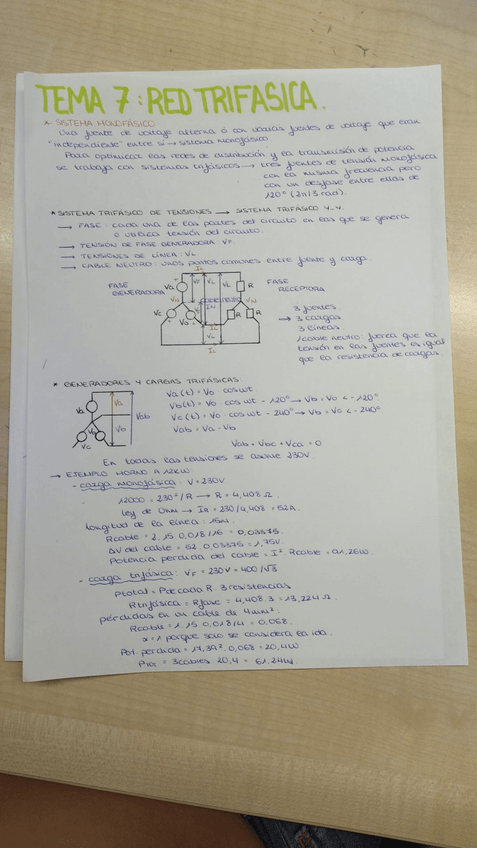 TEMA 7: RED TRIFASICA.
* SISTEMA MONOFÁSICO
Una fuente de voltaje alterna ó con varias fuentes de voltaje que eran
"independiente" entre sí → sistema monofásico
Para optimizar las redes de distribución y la transmisión de potencia
se trabaja con sistemas trifásicos → tres fuentes de tensión monofásica
con la misma frecuencia pero
con un desfase entre ellas de
120° (2π/3 rad).
* SISTEMA TRIFÁSICO DE TENSIONES → SISTEMA TRIFÁSICO Y-Y.
→ FASE: cada una de las partes del circuito en las que se genera
o utiliza tensión del circuito.
→ TENSIÓN DE FASE GENERADORA: VF.
→ TENSIONES DE LÍNEA: VL
→ CABLE NEUTRO: unos puntos comunes entre fuente y carga.
FASE GENERADORA
Va
Vc
Vb
VN
IL
VF
VL
VL
VN
R
R
R
IL
VL
IL
FASE RECEPTORA
3 fuentes
→ 3 cargas
3 líneas
1 cable neutro fuerza que la
tensión en las fuentes es igual
que la resistencia de cargas.
* GENERADORES Y CARGAS TRIFÁSICAS
Va
Vb
Vc
Va
Vb
Vab
Va(t) = Vo · cos wt.
Vb(t) = Vo · cos wt - 120° → Vb = Vo < -120°
Vc(t) = Vo · cos wt - 240° → Vb = Vo < -240°
Vab = Va - Vb
Vab + Vbc + Vca = 0
En todas las tensiones se asume 230V.
→ EJEMPLO HORNO A 12KW
- carga monofásica: V = 230V
12000 = 230²/R → R = 4,408 Ω.
Ley de Ohm → IR = 230/4,408 = 52A.
Longitud de la línea: 15m.
Rcable = 2 · 15 · 0,018/16 = 0,03375.
ΔV del cable = 52 · 0,03375 = 1,75V.
Potencia perdida del cable = I² · Rcable = 91,26W.
- carga trifásica: VF = 230V = 400/√3
Ptotal = Pdecada R · 3 resistencias
Rtrifásica = Rfase = 4,408 · 3 = 13,224 Ω.
pérdidas en un cable de 4mm²:
Rcable = 1 · 15 · 0,018/4 = 0,068.
x = 1 porque solo se considera la ida.
Pot. perdida = 17,39² · 0,068 = 20,4W
= 3cables · 20,4 = 61,24W.